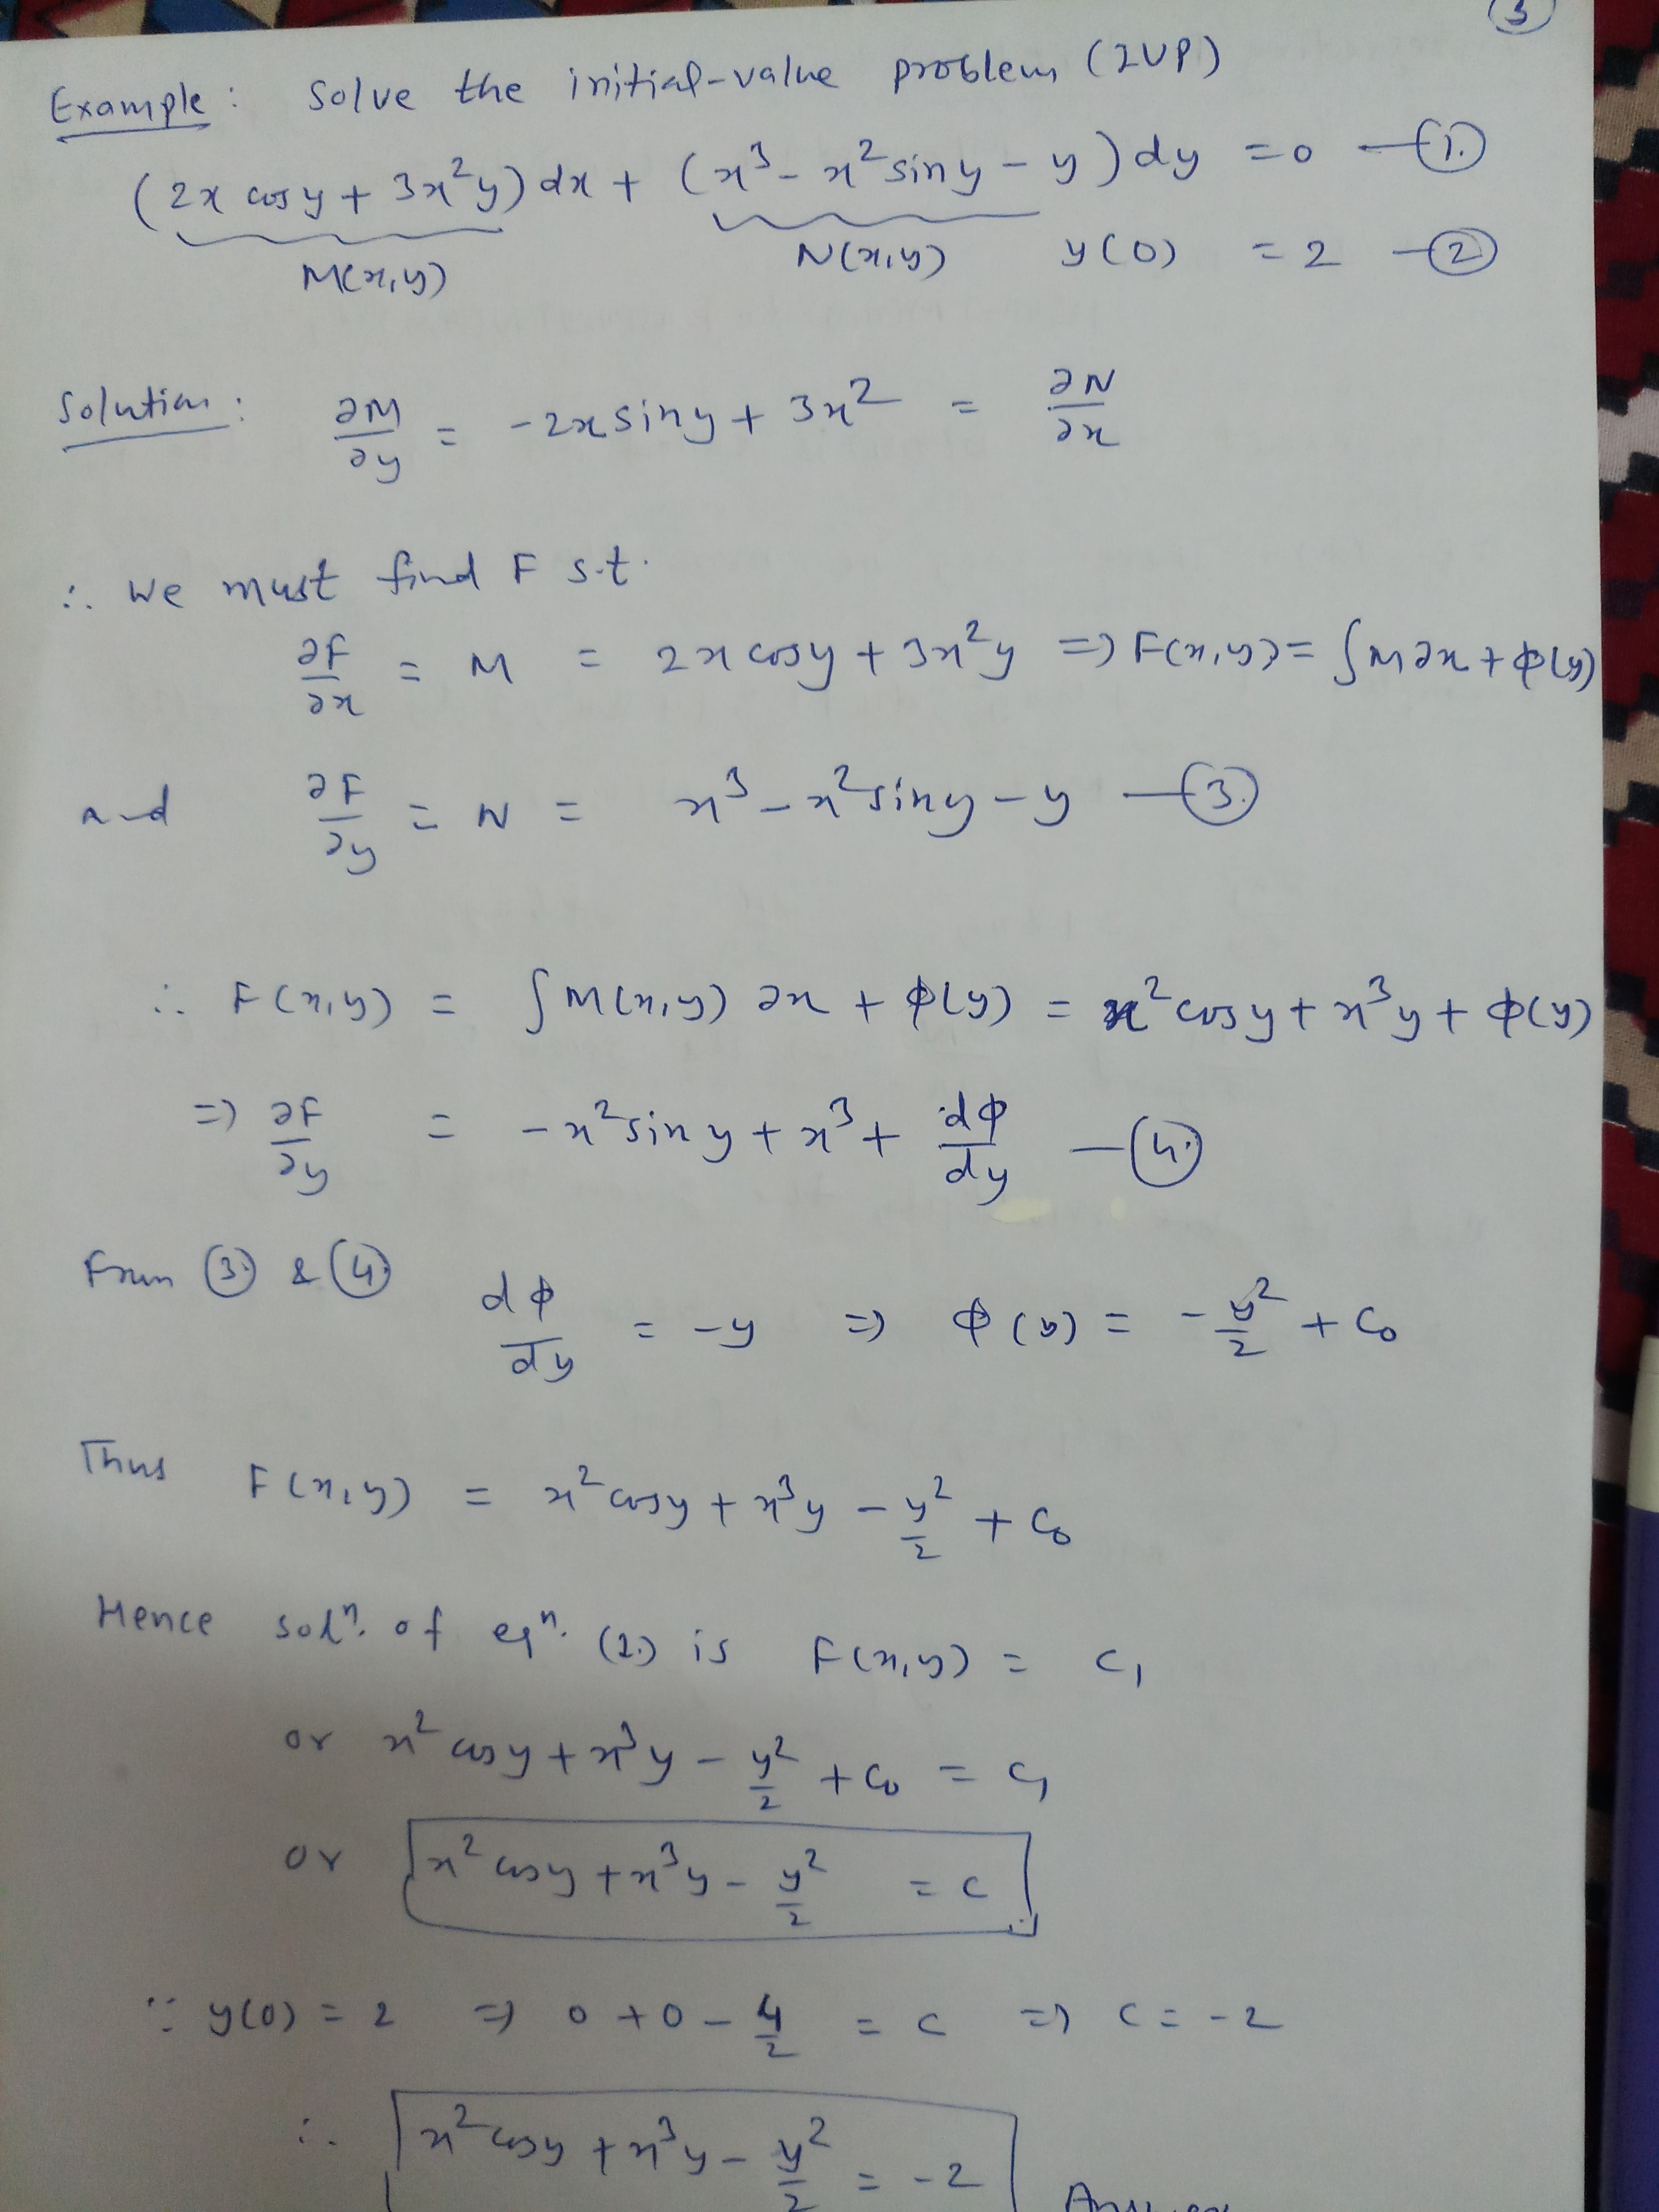 3
Example: Solve the initial-value problem (IVP)
(2x cosy + 3x²y)dx + (x³ - x² siny - y)dy = 0 — (1.)
M(x,y) N(x,y) y(0) = 2 — (2)
Solution: ∂M/∂y = -2x siny + 3x² = ∂N/∂x
∴ We must find F s.t.
∂F/∂x = M = 2x cosy + 3x²y => F(x,y) = ∫M∂x + ϕ(y)
and ∂F/∂y = N = x³ - x² siny - y — (3.)
∴ F(x,y) = ∫M(x,y) ∂x + ϕ(y) = x² cosy + x³y + ϕ(y)
=> ∂F/∂y = -x² siny + x³ + dϕ/dy — (4.)
From (3.) & (4.) dϕ/dy = -y => ϕ(y) = -y²/2 + c₀
Thus F(x,y) = x² cosy + x³y - y²/2 + c₀
Hence solⁿ. of eqⁿ. (1.) is F(x,y) = c₁
or x² cosy + x³y - y²/2 + c₀ = c₁
or x² cosy + x³y - y²/2 = c
∵ y(0) = 2 => 0 + 0 - 4/2 = c => c = -2
∴ x² cosy + x³y - y²/2 = -2 Answer